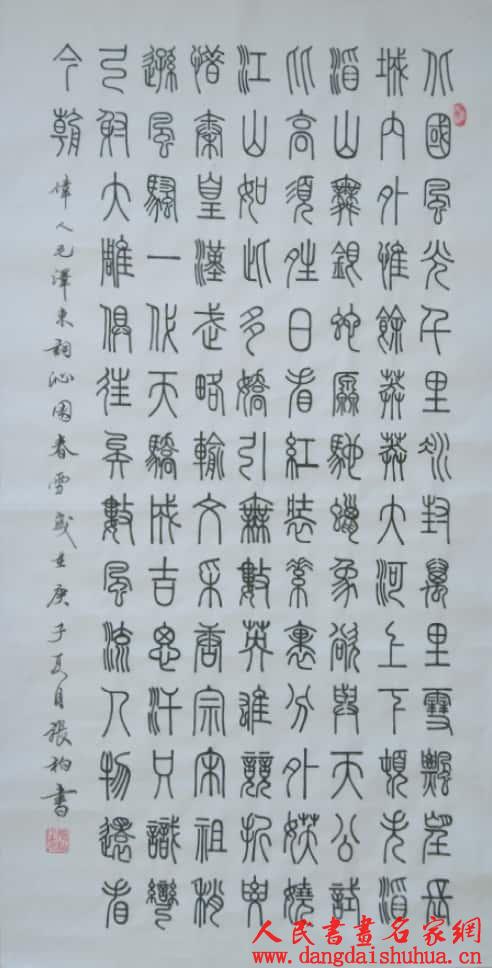 北國風光千里冰封萬里雪飄望長
城內外惟餘莽莽大河上下頓失滔
滔山舞銀蛇原馳蠟象欲與天公試
比高須晴日看紅裝素裹分外妖嬈
江山如此多嬌引無數英雄競折腰
惜秦皇漢武略輸文采唐宗宋祖稍
遜風騷一代天驕成吉思汗只識彎
弓射大雕俱往矣數風流人物還看
今朝
偉人毛澤東詞沁園春雪歲在庚子夏月張書
人民書畫名家網
www.dangdaishuhua.cn